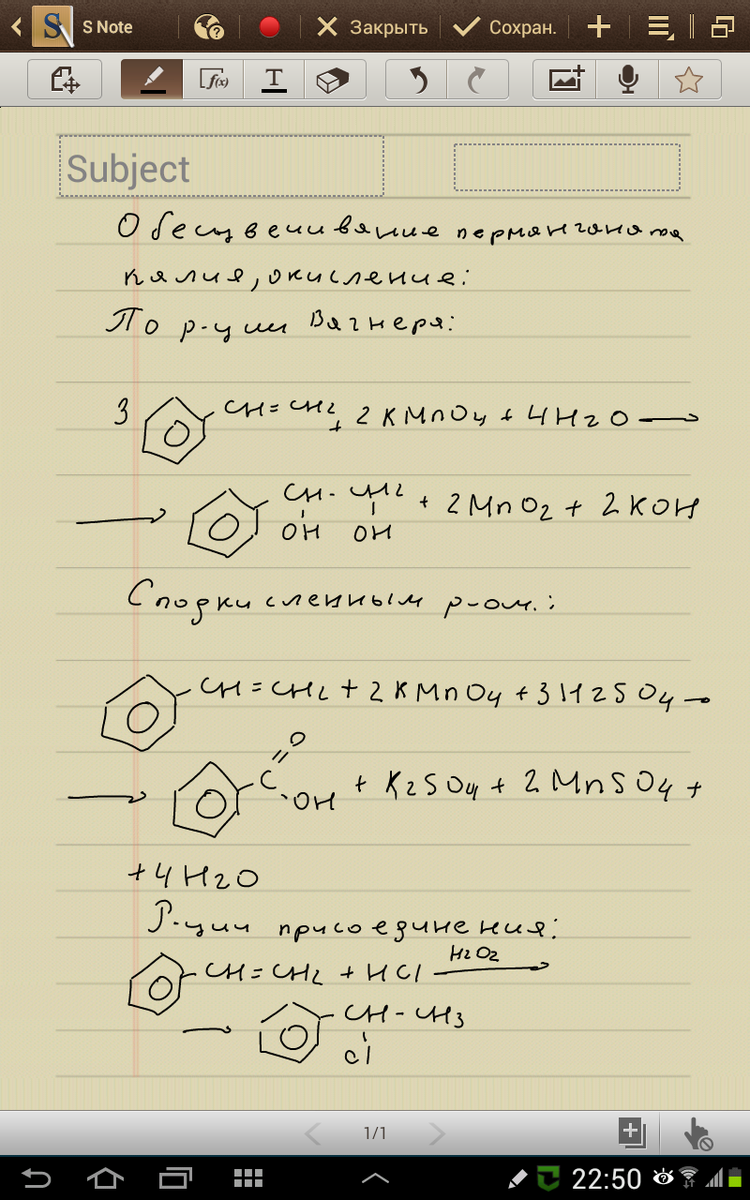 S Note
Закрыть
Сохран.
f(x)
T
Subject
Обесцвечивание перманганата
калия, окисление:
По р-ции Вагнера:
3 CH=CH2 + 2KMnO4 + 4H2O →
→ CH-CH2 + 2MnO2 + 2KOH
OH OH
С подкисленным р-ом.:
CH=CH2 + 2KMnO4 + 3H2SO4 →
O
→ C OH + K2SO4 + 2MnSO4 +
+4H2O
Р-ции присоединения:
H2O2
CH=CH2 + HCl →
→ CH-CH3
Cl
1/1
22:50